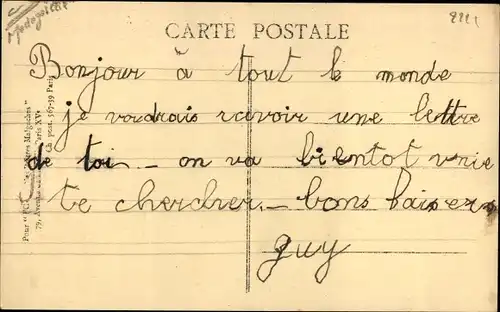 Madagascar
2221
CARTE POSTALE
Bonjour à tout le monde
je voudrais ravoir une lettre
de toi - on va bientot venir
te chercher - bons baisers
guy
79, Avenue
Paris XVe
Ch. post. 567-39 Paris